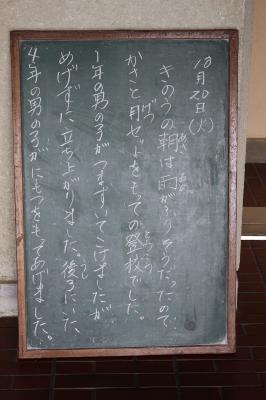 10月20日(火)
きのうの朝は雨がふりそうだったので、
かさと月セットをもっての登校でした。
1年の男の子がつまずいてこけましたが
めげずに立ち上がりました。後ろにいた、
4年の男の子がにもつをもってあげました。